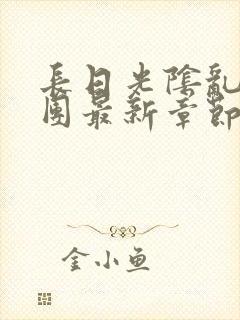 長日光陰亂
團最新章節
金小鱼